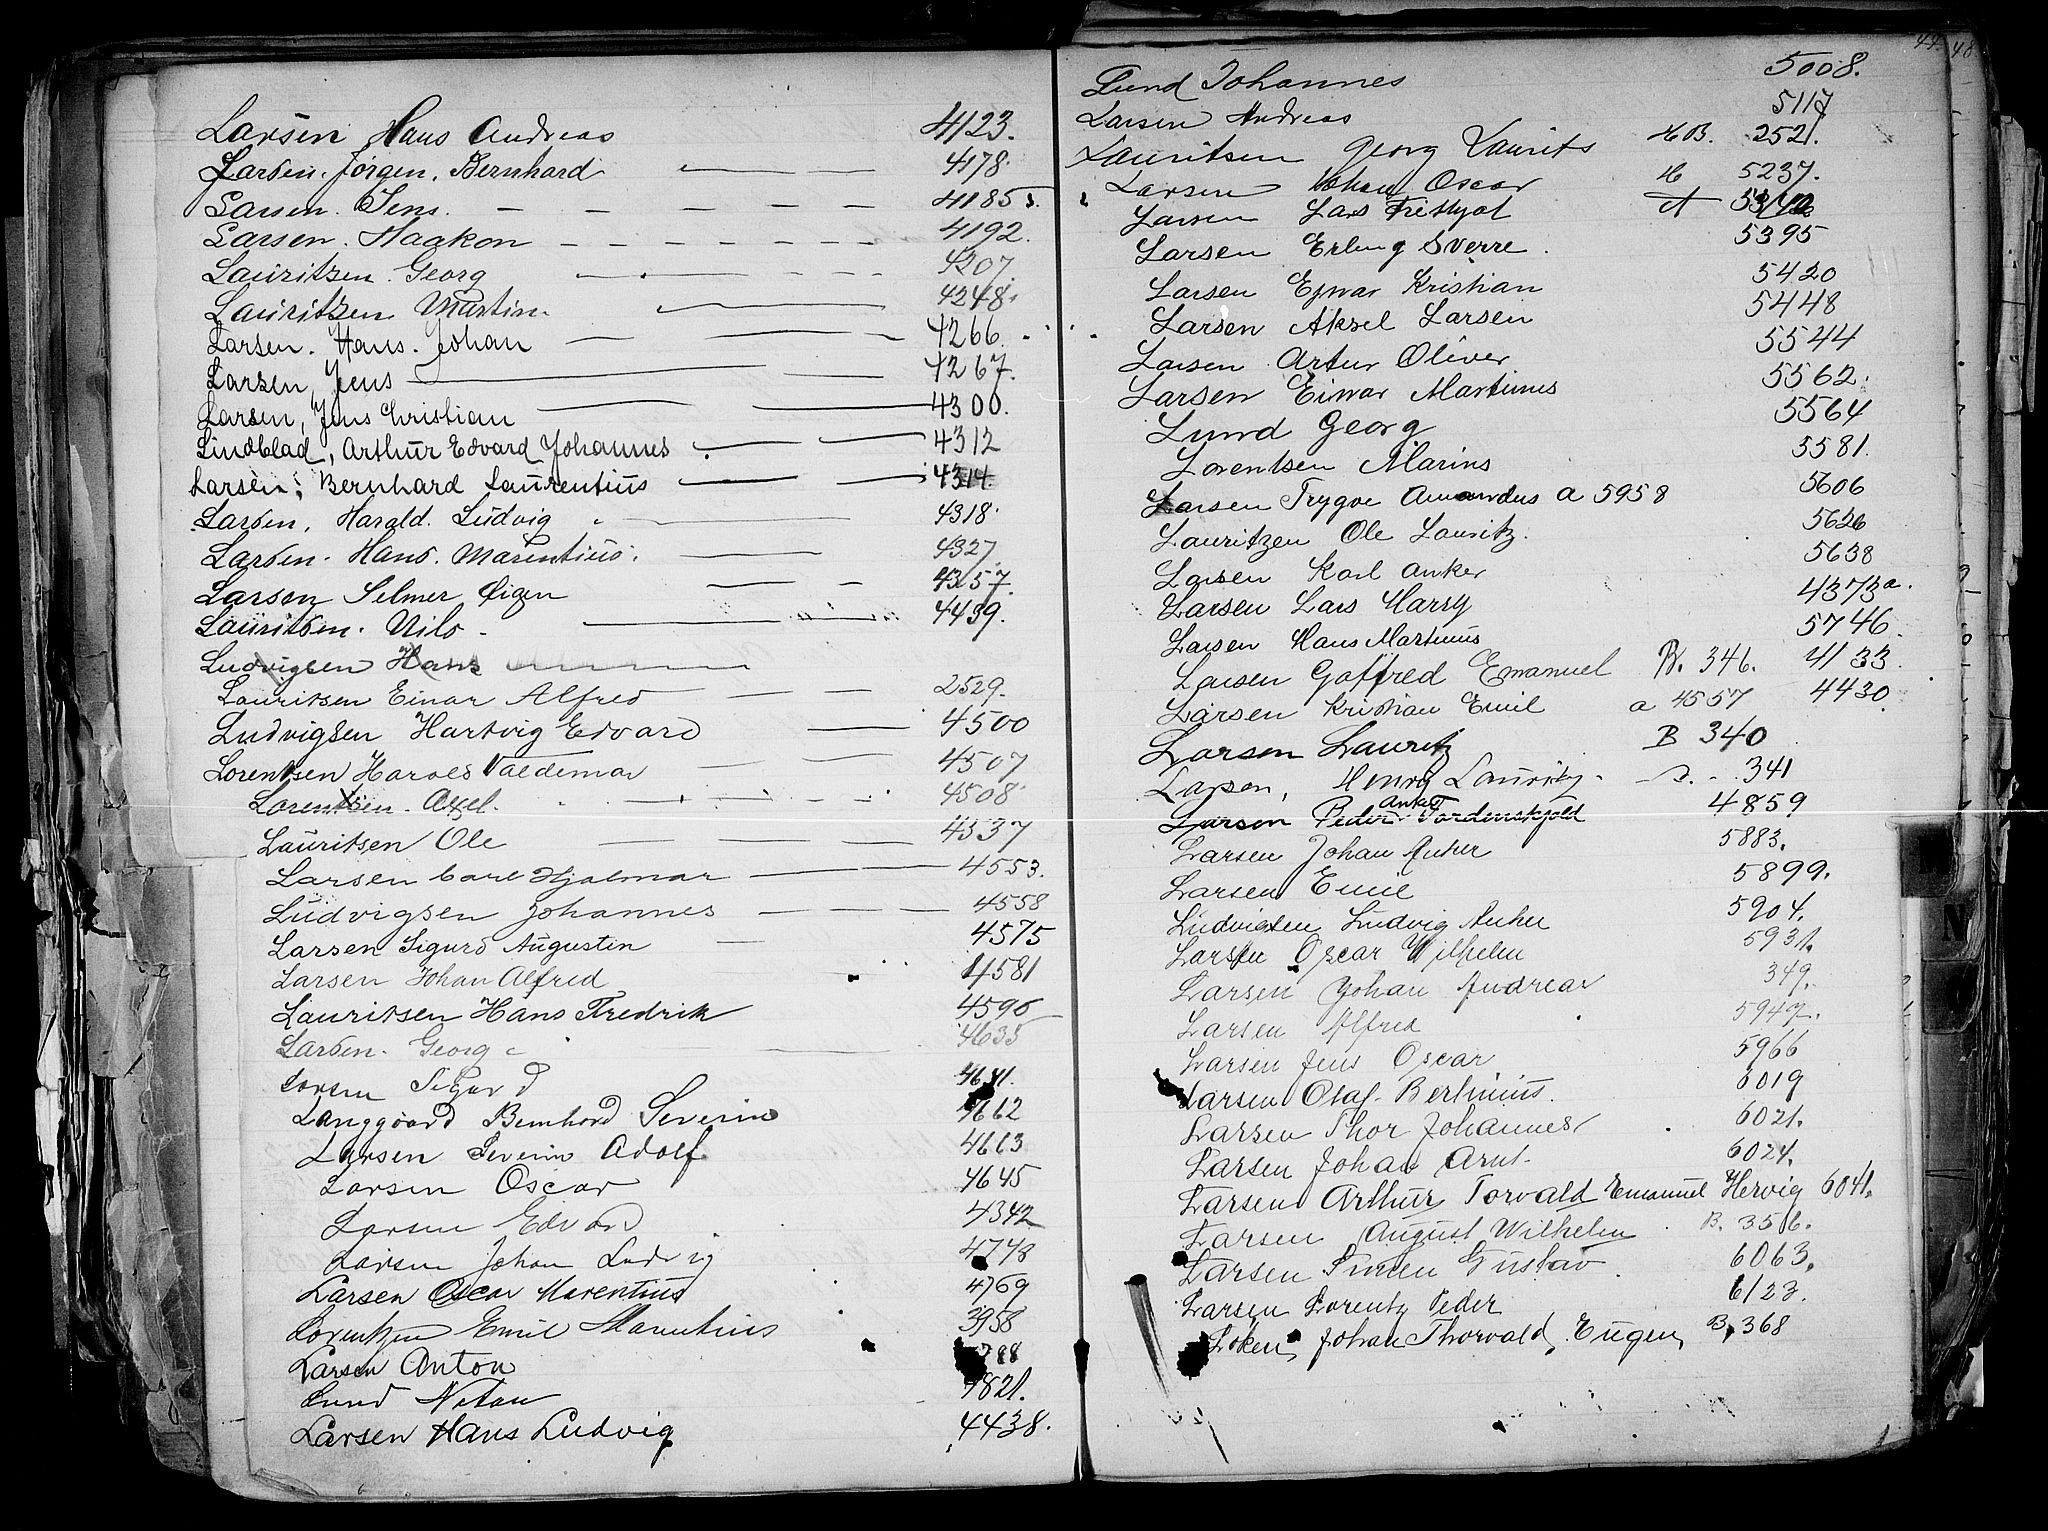 Larsen Hans Andreas 4123.
Larsen. Jörgen. Bernhard 4178.
Larsen. Jens. 4185
Larsen. Haakon 4192.
Lauritzen. Georg 4207.
Lauritzen Martin. 4248.
Larsen. Hans. Johan 4266.
Larsen, Jens 4267.
Larsen, Jens Christian 4300.
Lindblad, Arthur Edvard Johannes 4312
Larsen, Bernhard Laurentius 4314.
Larsen, Harald. Ludvig 4318.
Larsen. Hans. Marentius. 4327.
Larsen Selmer Eigen 4357.
Lauritsen. Nils. 4439.
Ludvigsen Hans
Lauritsen Einar Alfred 2529.
Ludvigsen Hartvig Edvard 4500
Lorentsen Harold Valdemar 4507
Lorentsen. Axel. 4508.
Lauritsen Ole 4537
Larsen Carl Hjalmar 4553.
Ludvigsen Johannes 4558
Larsen Sigurd Augustin 4575
Larsen Johan Alfred 4581
Lauritsen Hans Fredrik 4596
Larsen. Georg 4635
Larsen Sigurd 4641.
Langgaard Bernhard Severin 4662
Larsen Severin Adolf. 4663
Larsen Oscar 4645
Larsen Edvard 4342
Larsen Johan Ludvig 4748
Larsen Oscar Marentius 4769
Lorentzen Emil Marentius 3958
Larsen Anton
Lund Natan 4821.
Larsen Hans Ludvig 4438.
48
Lund Johannes 5008.
Larsen Andreas 5117
Lauritsen Georg Laurits B. 2521.
Larsen Johan Oscar 5237.
Larsen Lars Frithjof A
Larsen Erling Sverre. 5395
Larsen Ejnar Kristian 5420
Larsen Aksel Larsen 5448
Larsen Artur Oliver 5544
Larsen Einar Martinus 5562.
Lund Georg 5564
Lorentsen Marius 5581.
Larsen Trygve Amandus a 5958 5606
Lauritzen Ole Lauritz. 5626
Larsen Karl Anker 5638
Larsen Lars Harry 4373a.
Larsen Hans Martinus 5746.
Larsen Gotfred Emanuel B. 346. 4133.
Larsen Kristian Emil a 4557 4430.
Larsen Lauritz B 340
Larsen, Henry Lauritz. 341
Larsen Peder Anker Tordenskjold 4859
Larsen Johan Anker 5883.
Larsen Emil 5899.
Ludvigsen Ludvig Anker 5904.
Larsen Oscar Wilhelm 5931.
Larsen Johan Andreas 349.
Larsen Alfred 5947.
Larsen Jens Oscar 5966
Larsen Olaf. Bertinius. 6019
Larsen Thor Johannes 6021.
Larsen Johan Arnt. 6024.
Larsen Arthur Torvald Emanuel Hervig 6041.
Larsen August Wilhelm B. 356.
Larsen Simen Gustav 6063.
Larsen Lorentz Peder 6123.
Löken, Johan Thorvald, Eugen, B. 368